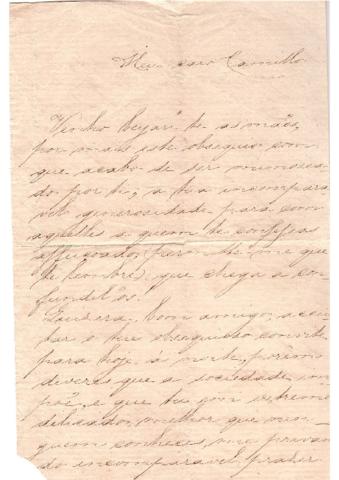 Meu caro Camillo
Venho beijar-te as mãos,
por mais este obsequio com
que acabo de ser mimosea
do por ti; a tua incompara
vel generosidade para com
aquelles a quem te confessas
affeiçoado, permitte-me que
te lembre, que chega a con-
fundil-os.
Quizera, bom amigo, accei
tar o teu obsequioso convite
para hoje á noite, porem
deveres que a sociedade im
põe, e que tu por extremo
delicado, melhor que nin
guem conheces, me privam
do incomparavel prazer